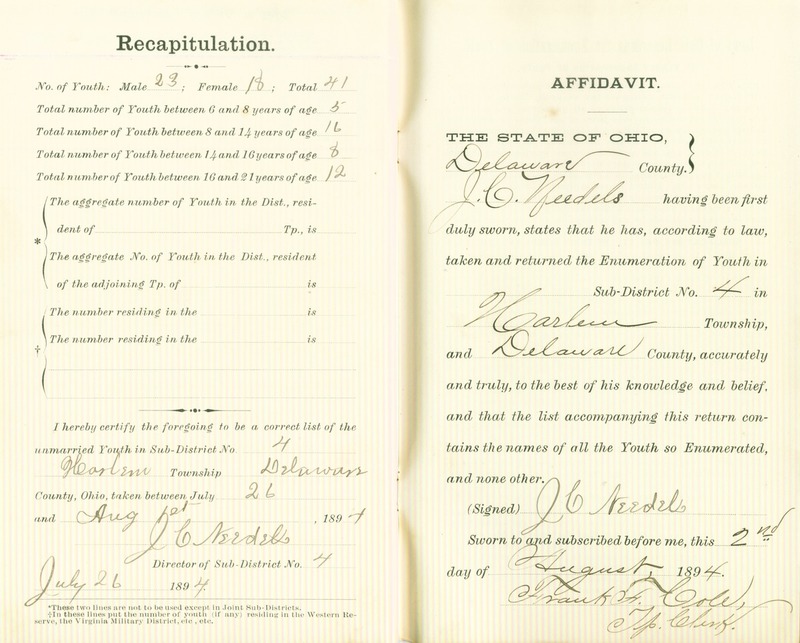 Recapitulation.
No. of Youth: Male 23; Female 18; Total 41
Total number of Youth between 6 and 8 years of age 5
Total number of Youth between 8 and 14 years of age 16
Total number of Youth between 14 and 16 years of age 8
Total number of Youth between 16 and 21 years of age 12
* The aggregate number of Youth in the Dist., resi-
dent of Tp., is
The aggregate No. of Youth in the Dist., resident
of the adjoining Tp. of is
† The number residing in the is
The number residing in the is
I hereby certify the foregoing to be a correct list of the
unmarried Youth in Sub-District No 4
Harlem Township Delaware
County, Ohio, taken between July 26
and Aug 1st, 1894
J C Needels
Director of Sub-District No. 4
July 26 1894.
*These two lines are not to be used except in Joint Sub-Districts.
†In these lines put the number of youth (if any) residing in the Western Re-
serve, the Virginia Military District, etc., etc.
AFFIDAVIT.
THE STATE OF OHIO,
Delaware County.
J. C. Needels having been first
duly sworn, states that he has, according to law,
taken and returned the Enumeration of Youth in
Sub-District No. 4 in
Harlem Township,
and Delaware County, accurately
and truly, to the best of his knowledge and belief,
and that the list accompanying this return con-
tains the names of all the Youth so Enumerated,
and none other.
(Signed) J C Needels
Sworn to and subscribed before me, this 2nd
day of August, 1894.
Frank Cole,
Tp. Clerk.